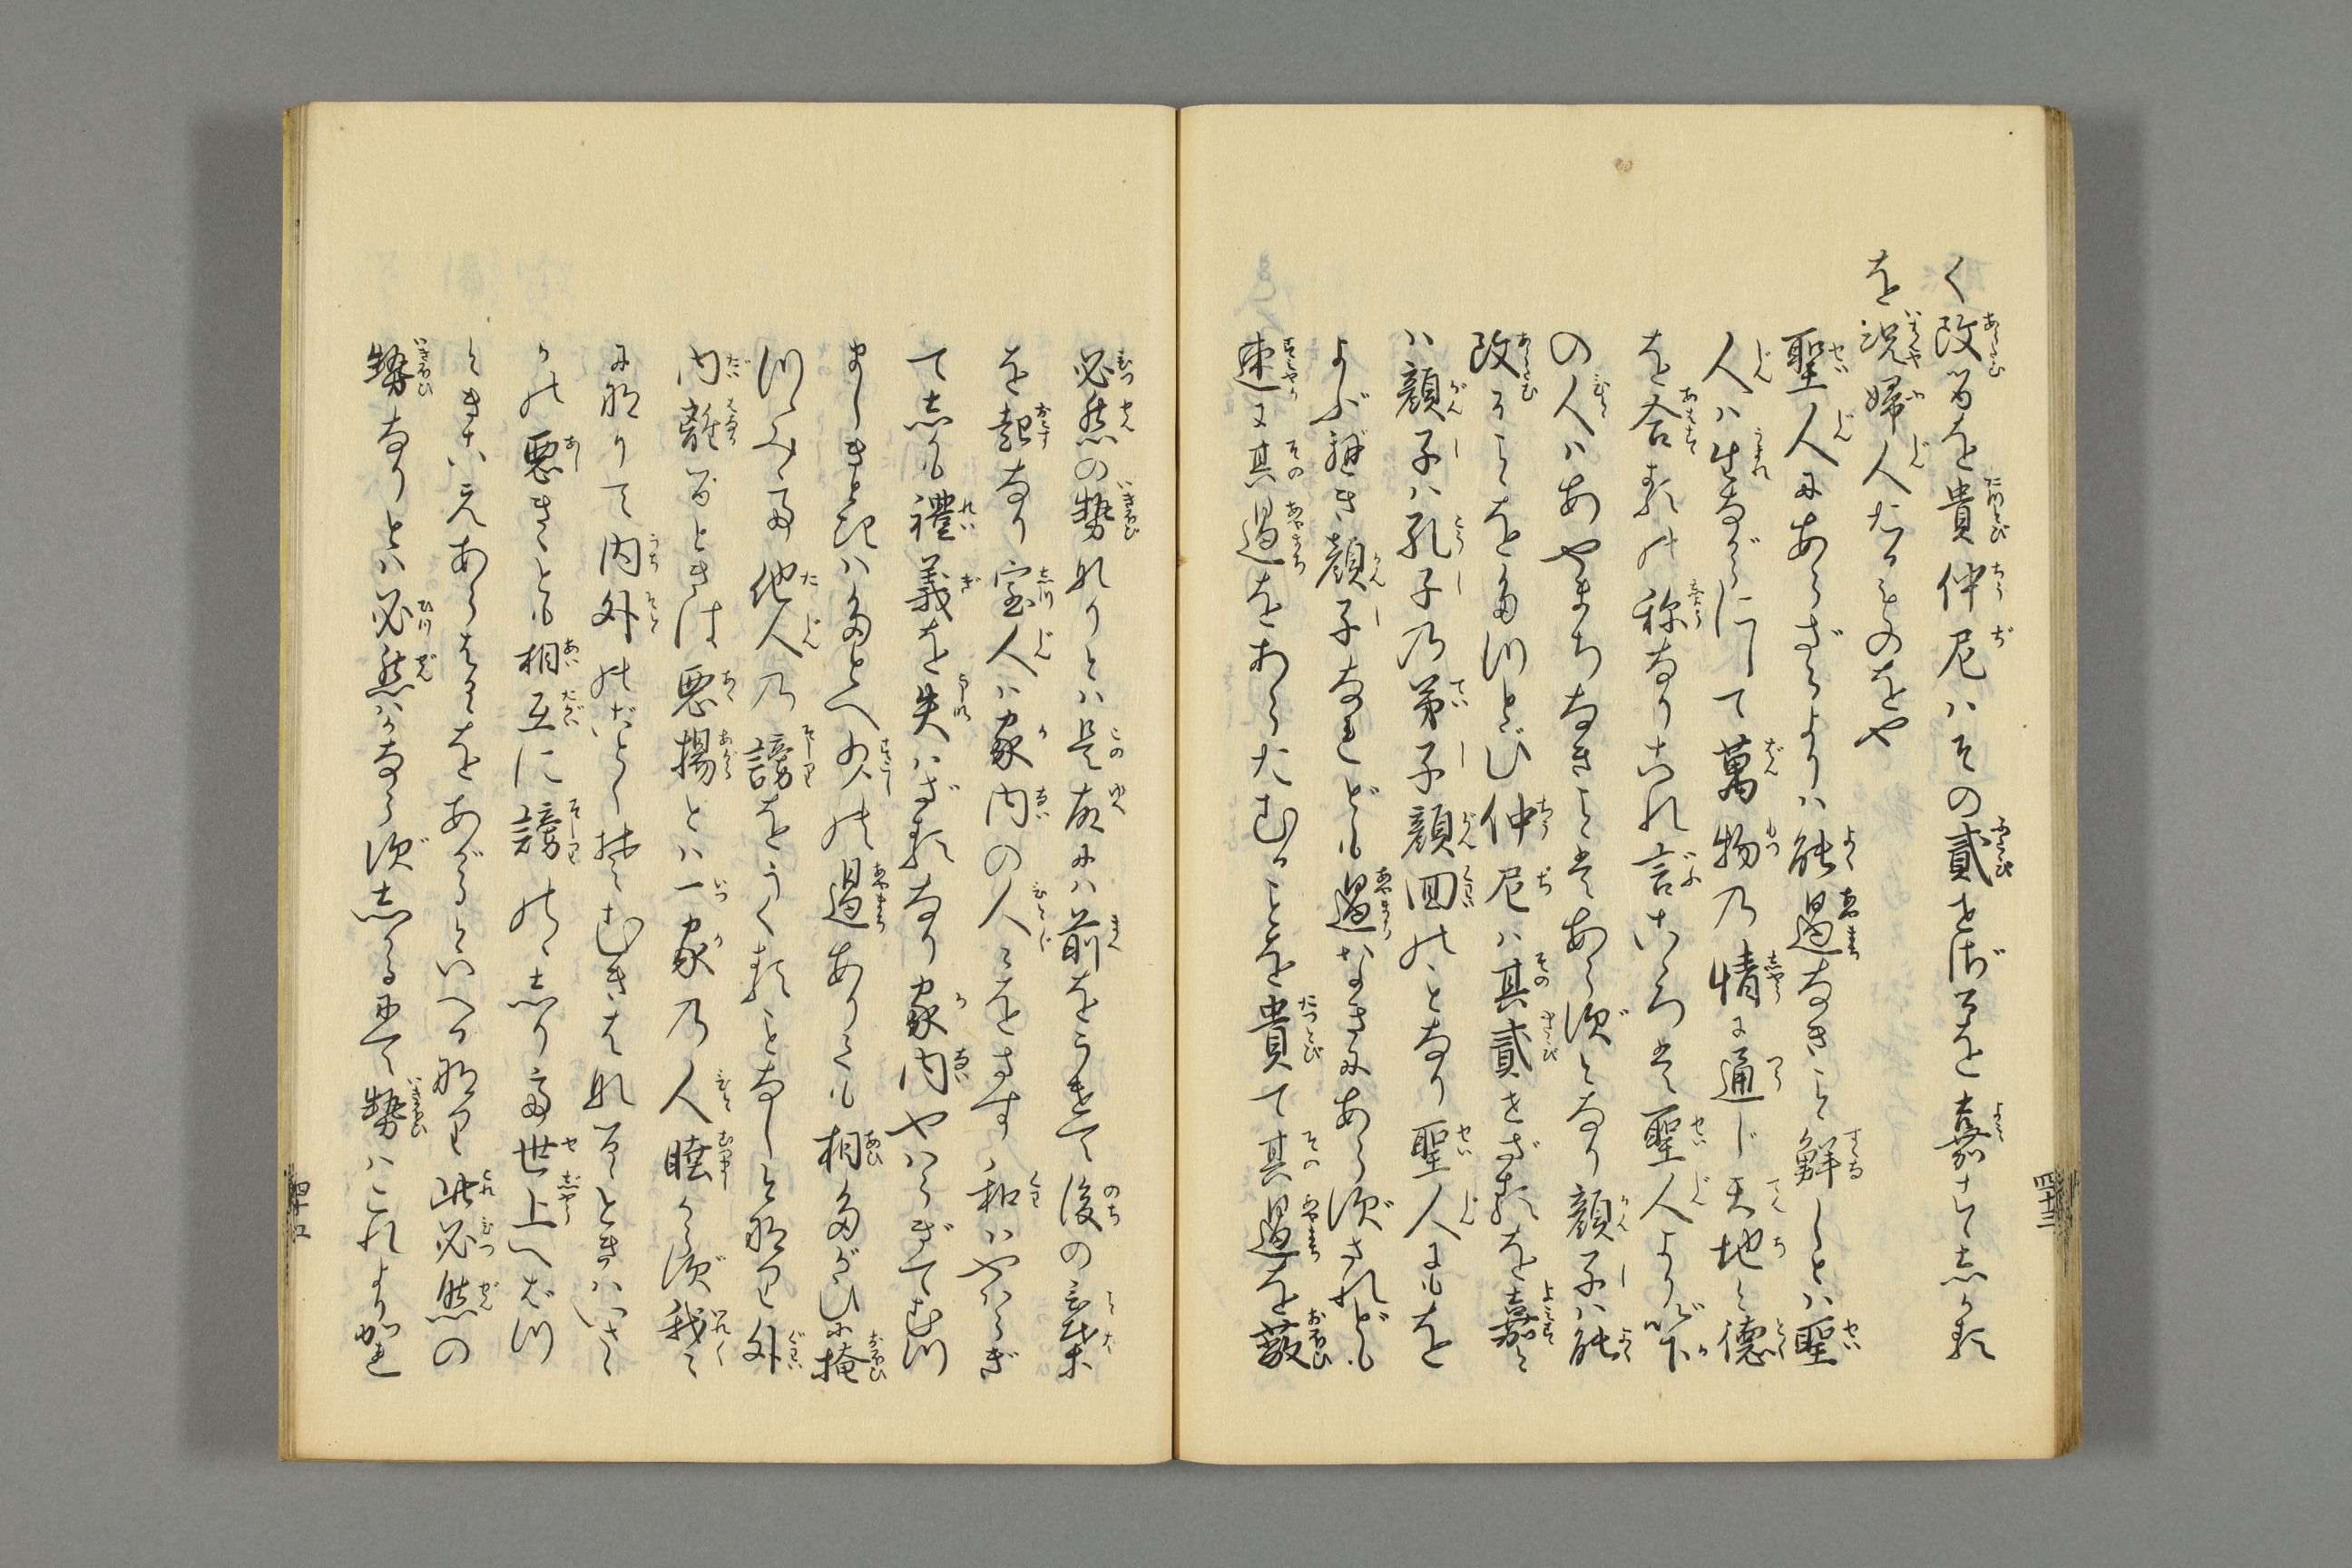 く改るを貴仲尼ハその貳せざるを嘉す しかる
を況婦人たるものをや
聖人にあらざるよりハ能過なきこと鮮しとハ聖
人ハ生ながらにして萬物乃情に通じ天地と徳
を合る 称なり これ言こゝろハ聖人より以下
の人ハあやまちなきことあらずとなり顔子ハ能
改ることをたつとび仲尼ハ其貳せざるを嘉と
ハ顔子ハ孔子乃弟子顔回のことなり聖人にもを
よぶ顔子なれども過なきにあらずされども
速に其過をあらたむることを貴て其過を蔽
必然の勢なりとハ是故にハ前をうけて後の
を起なり室人ハ家内の人々をさす和ハやハらぎ
て しかも禮義を失ハざるなり家内やハらぎてむつ
ましきときハたとへ の過ありても相たがひに掩
つゝみて他人乃謗をうくることなしとなり外
内離るときは悪揚とハ一家乃人睦からず我々
になりて内外 むきになるときハいさゝ
かの悪きことも相互に謗のゝしりて世上へぱつ
ときこえあらはるをあがるといへるなり此必然の
勢なりとハ必然ハかならずしかるにて勢ハこれよりかれ
四十三